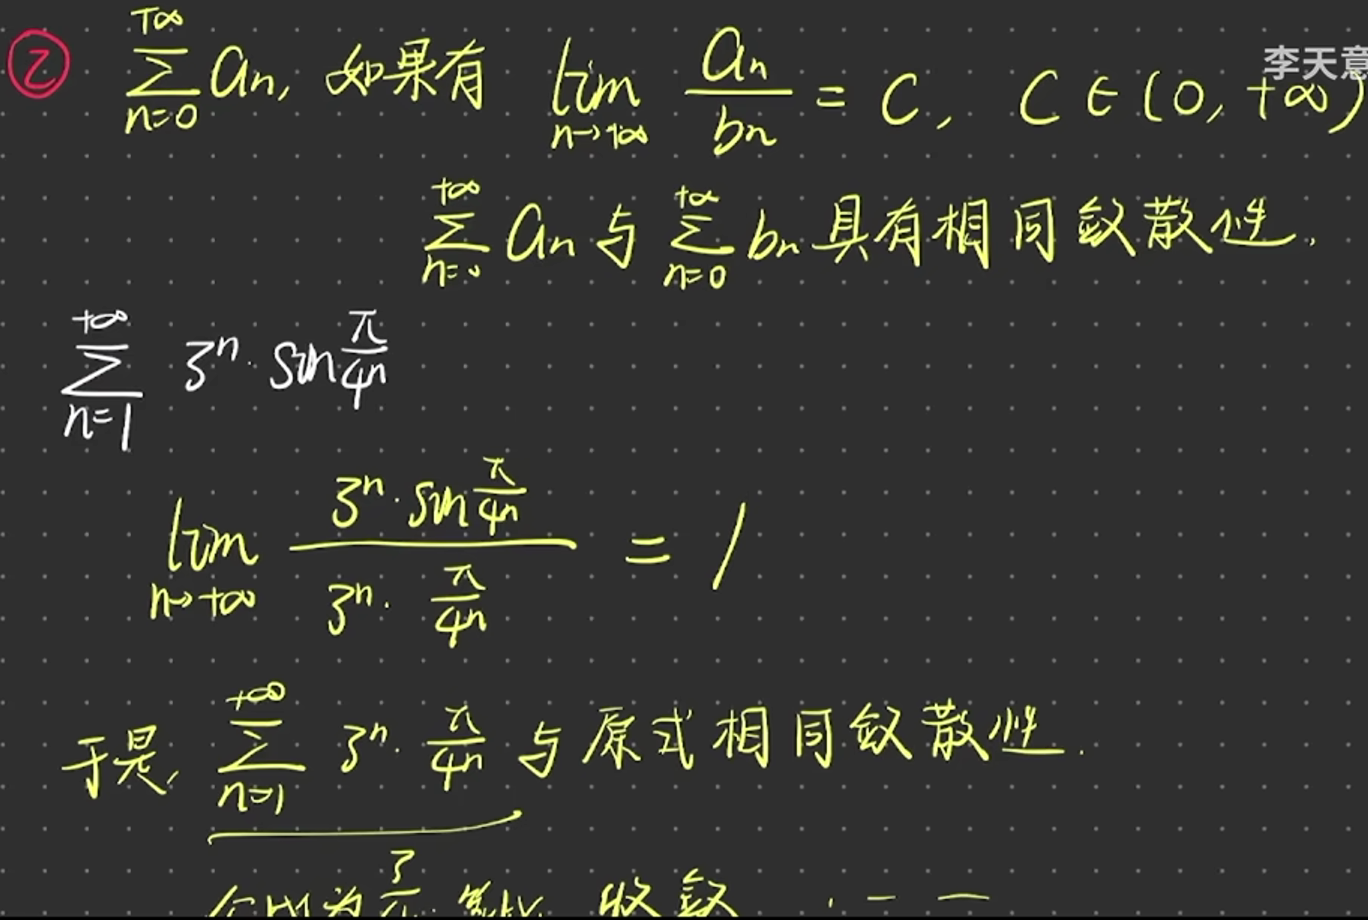 ② \sum_{n=0}^{+\infty} a_n, 如果有 \lim_{n→+\infty} \frac{a_n}{b_n} = C, C∈(0, +∞)
李天意
\sum_{n=0}^{+\infty} a_n 与 \sum_{n=0}^{+\infty} b_n 具有相同敛散性.
\sum_{n=1}^{+\infty} 3^n · sin\frac{π}{4^n}
\lim_{n→+\infty} \frac{3^n · sin\frac{π}{4^n}}{3^n · \frac{π}{4^n}} = 1
于是, \sum_{n=1}^{+\infty} 3^n · \frac{π}{4^n} 与原式相同敛散性.
为 收敛